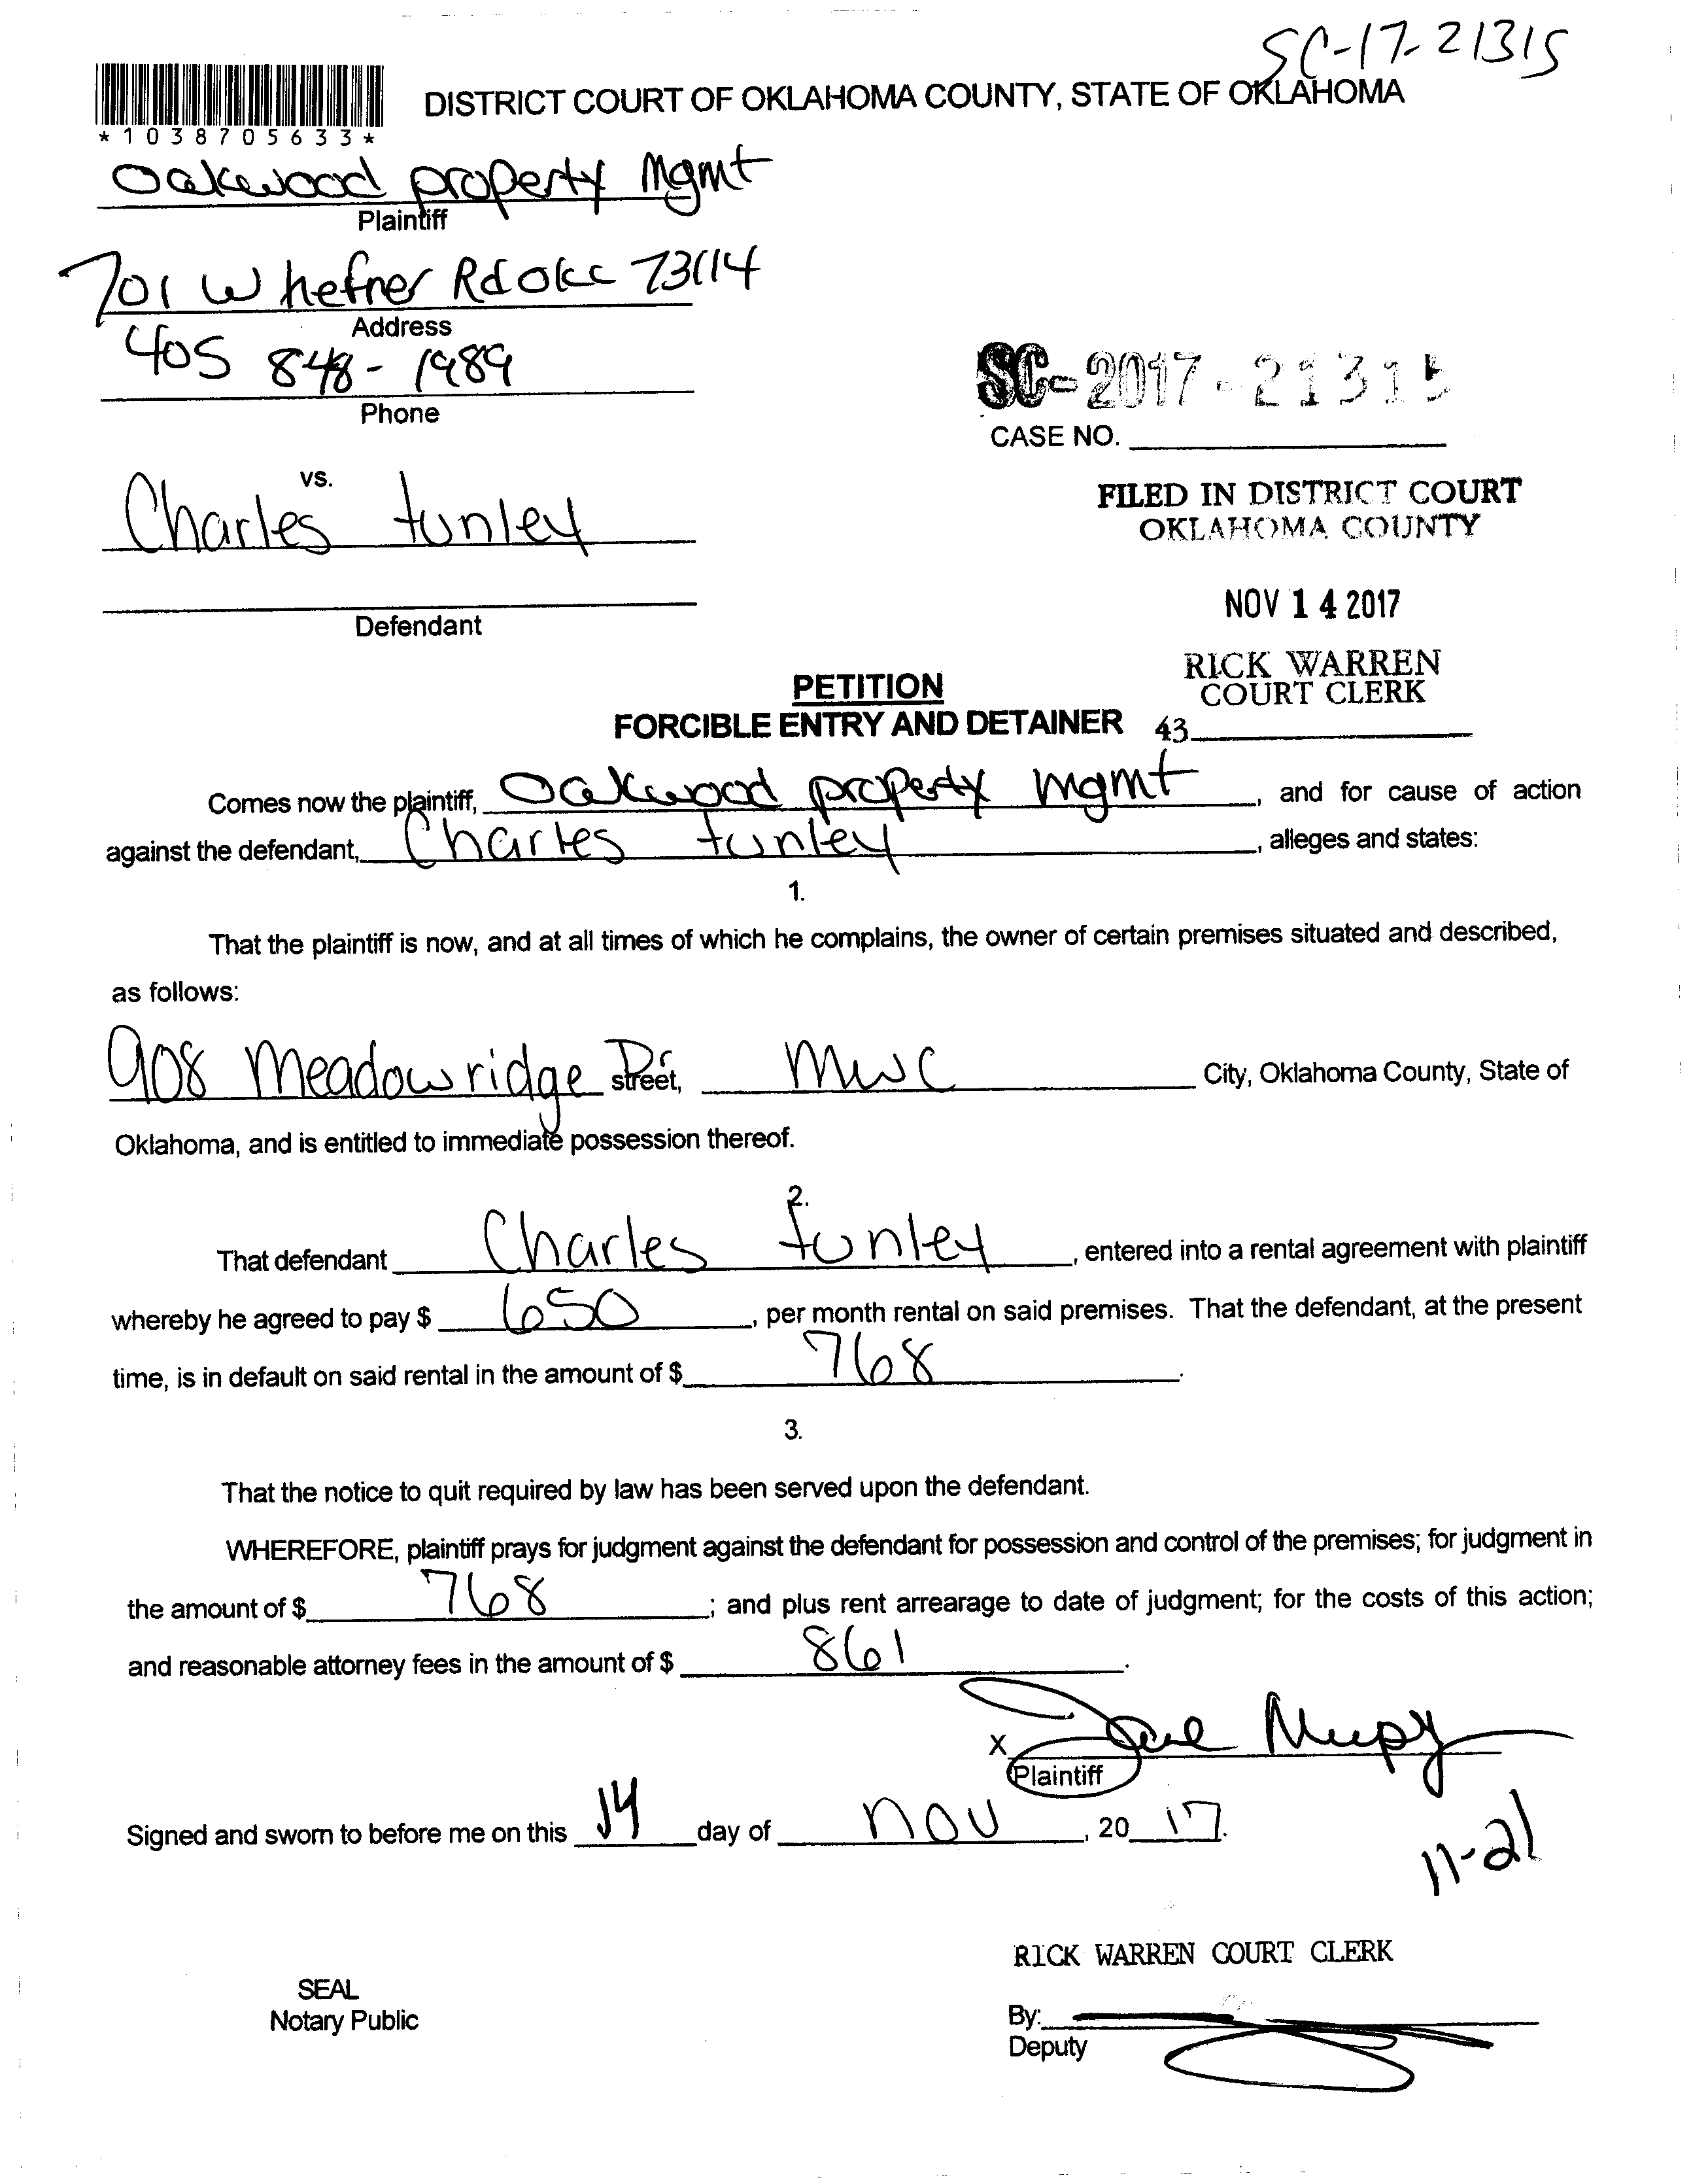 SC-17-21315
DISTRICT COURT OF OKLAHOMA COUNTY, STATE OF OKLAHOMA
*1038705633*
Oakwood property Mgmt
Plaintiff
701 W hefner Rd okc 73114
Address
405 848-1989
Phone
SC-2017-21315
CASE NO.
vs.
Charles tunley
FILED IN DISTRICT COURT
OKLAHOMA COUNTY
NOV 14 2017
Defendant
RICK WARREN
COURT CLERK
PETITION
FORCIBLE ENTRY AND DETAINER
43
Comes now the plaintiff, Oakwood property mgmt, and for cause of action
against the defendant, Charles tunley, alleges and states:
1.
That the plaintiff is now, and at all times of which he complains, the owner of certain premises situated and described,
as follows:
908 Meadowridge Dr. street, MWC City, Oklahoma County, State of
Oklahoma, and is entitled to immediate possession thereof.
2.
That defendant Charles tunley, entered into a rental agreement with plaintiff
whereby he agreed to pay $ 650, per month rental on said premises. That the defendant, at the present
time, is in default on said rental in the amount of $ 768.
3.
That the notice to quit required by law has been served upon the defendant.
WHEREFORE, plaintiff prays for judgment against the defendant for possession and control of the premises; for judgment in
the amount of $ 768; and plus rent arrearage to date of judgment; for the costs of this action;
and reasonable attorney fees in the amount of $ 861.
X
Plaintiff
Signed and sworn to before me on this 14 day of nov, 20 17.
11-21
RICK WARREN COURT CLERK
SEAL
Notary Public
By:
Deputy